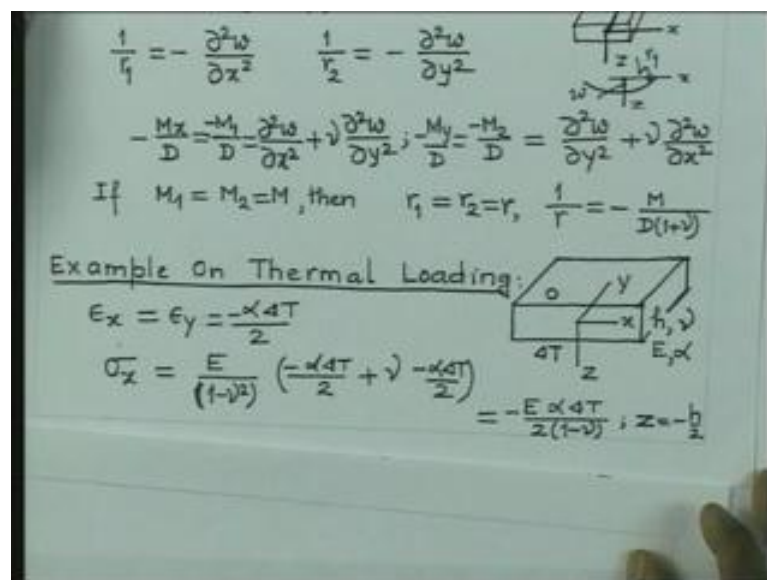 1/r₁ = - ∂²w/∂x²    1/r₂ = - ∂²w/∂y²
x
z r₁
h x
w z
- Mx/D = -M₁/D = ∂²w/∂x² + ν ∂²w/∂y² ; -My/D = -M₂/D = ∂²w/∂y² + ν ∂²w/∂x²
If M₁ = M₂ = M, then r₁ = r₂ = r, 1/r = - M/D(1+ν)
Example On Thermal Loading:
O y x h, ν
ΔT z E, α
ϵx = ϵy = -αΔT/2
σx = E/(1-ν²) (-αΔT/2 + ν -αΔT/2)
= - E α ΔT/2(1-ν) ; z = -h/2